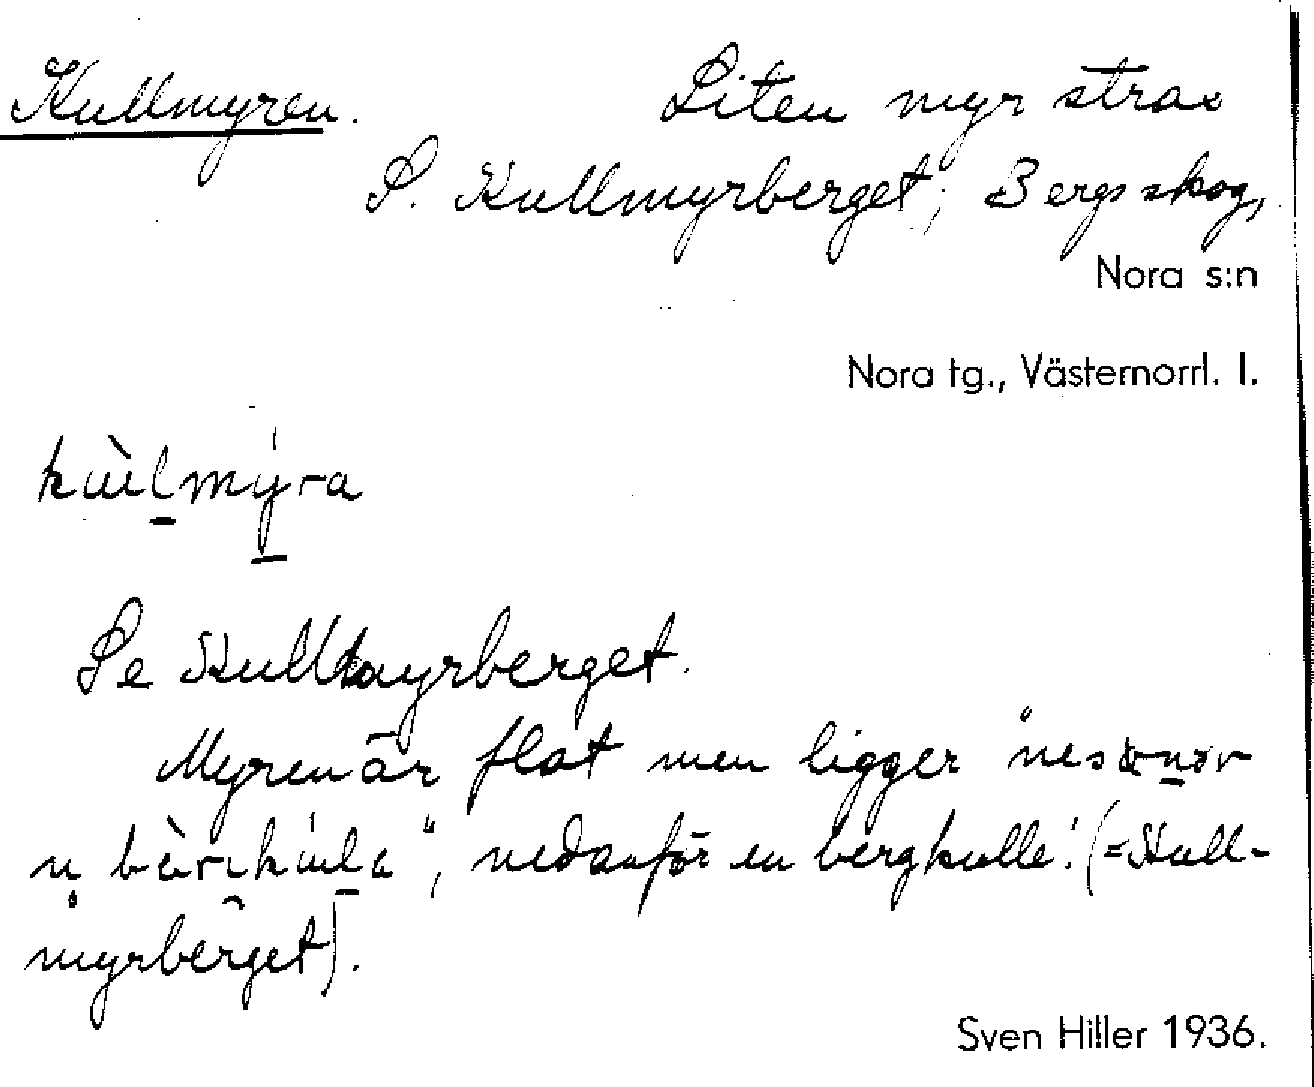 Kullmyren. Liten myr strax
S. Kullmyrberget, Bergs skog,
Nora s:n
Nora tg., Västernorrl. l.
kùlmýra
Se Kullmyrberget.
Myren är flat men ligger
nedanför en bergkulle! (=Kull-
myrberget).
Sven Hiller 1936.